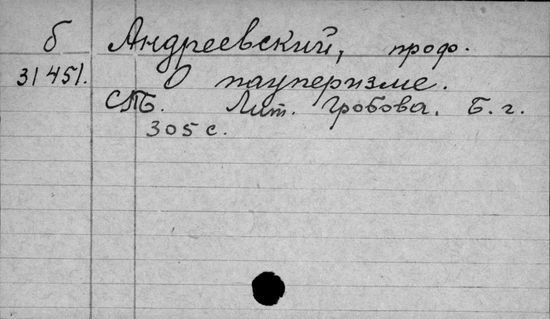 б Андреевский, проф.
31451. О пауперизме.
СПБ. Лит. Гробова. Б. г.
305 с.